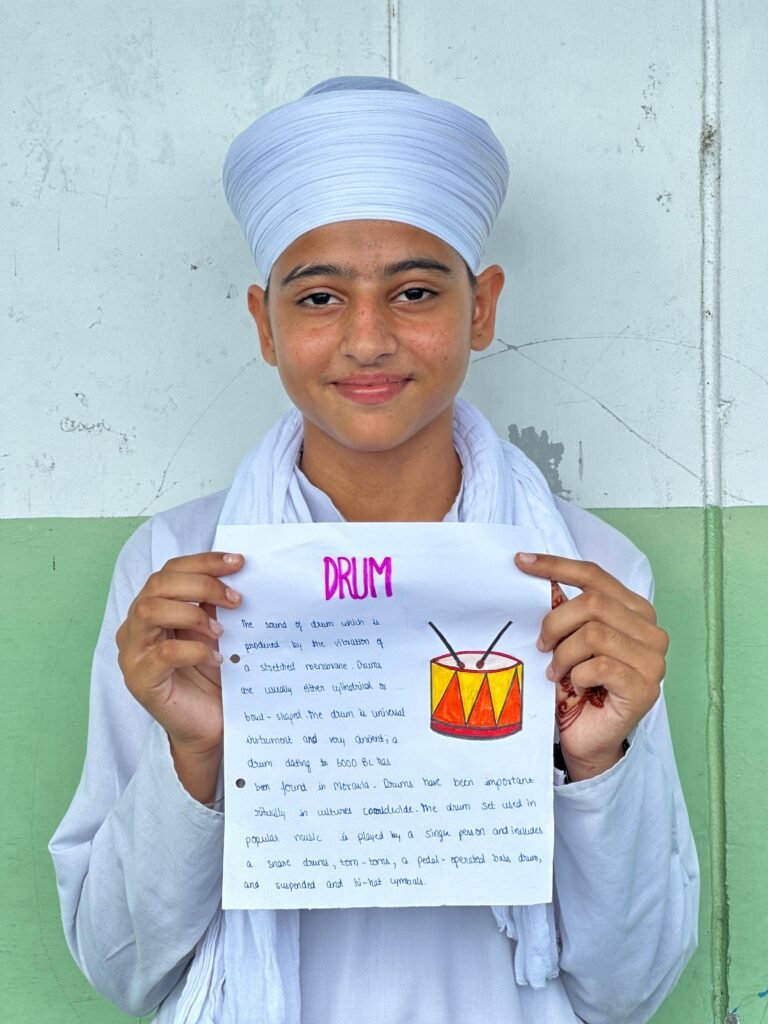 DRUM
The sound of drum which is
produced by the vibration of
a stretched membrane. Drums
are usually either cylindrical or
bowl-shaped. The drum is universal
instrument and very ancient; a
drum dating to 6000 BC has
been found in Moravia. Drums have been important
ritually in cultures worldwide. The drum set used in
popular music is played by a single person and includes
a snare drums, tom-toms, a pedal-operated bass drum,
and suspended and hi-hat cymbals.